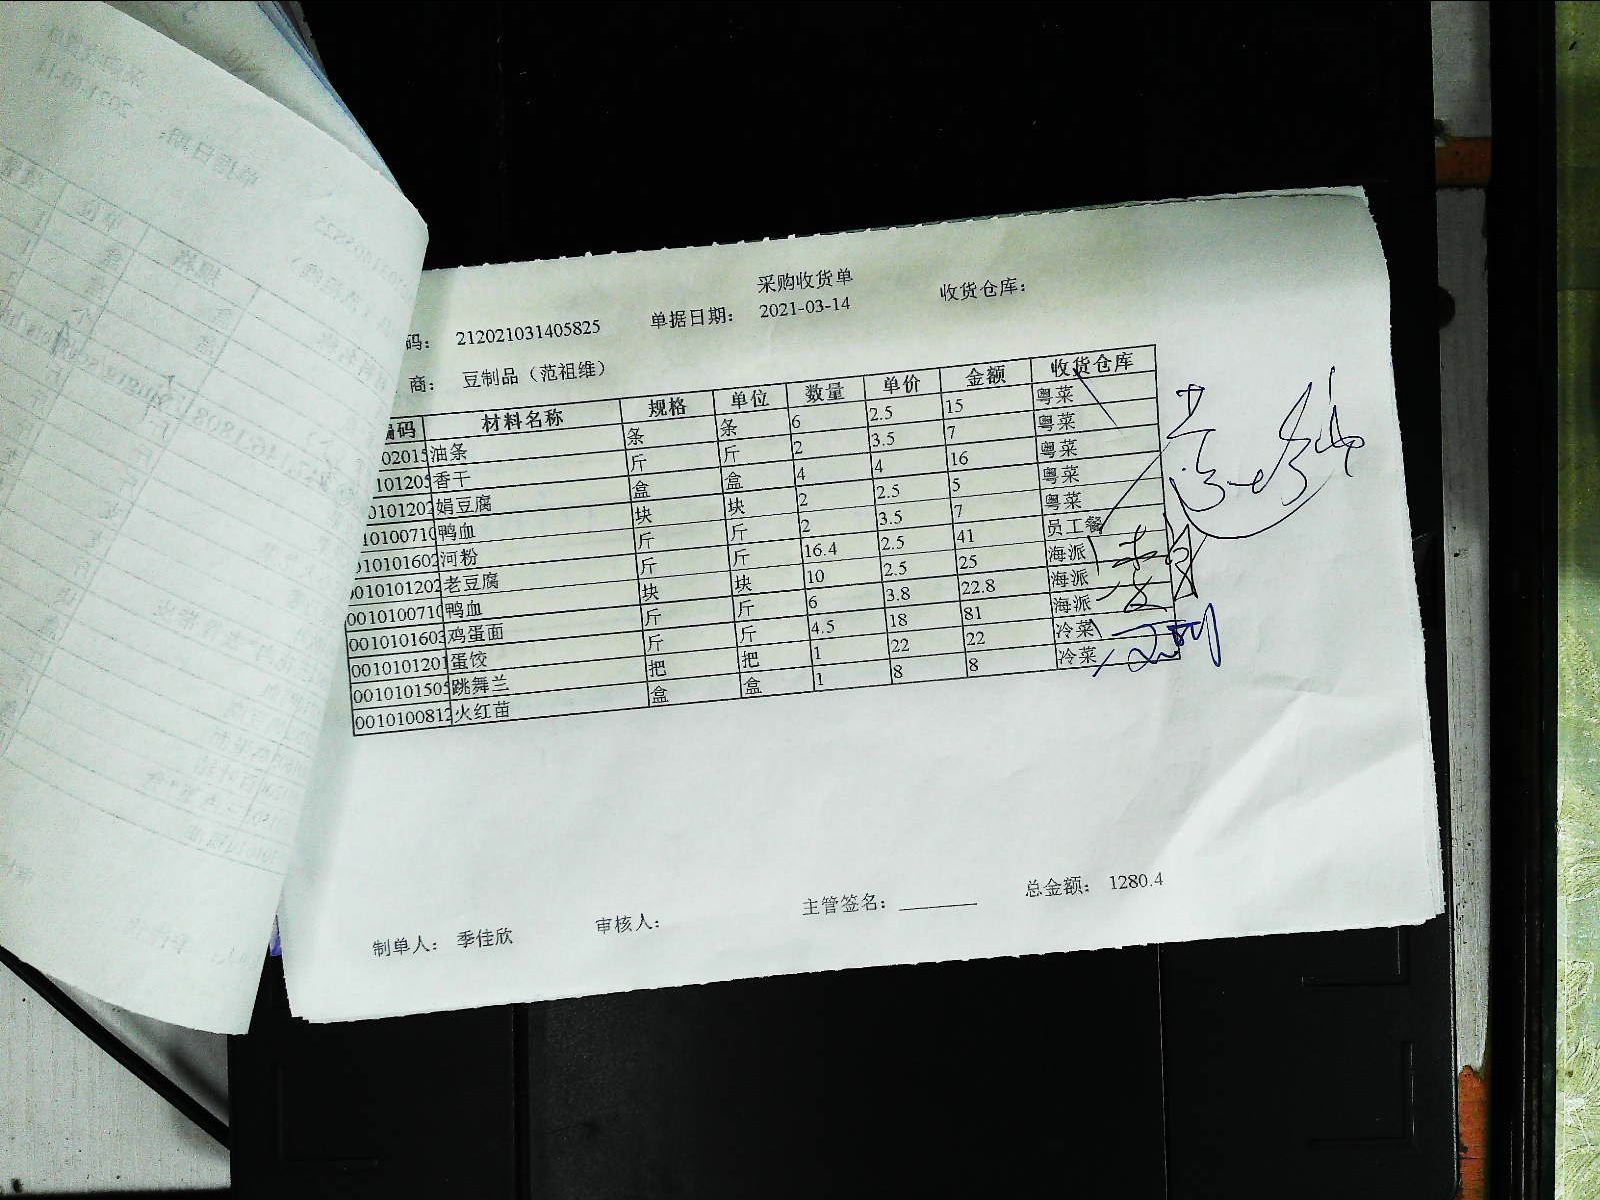 采购收货单
码： 212021031405825 单据日期： 2021-03-14 收货仓库：
商： 豆制品（范祖维）
编码 材料名称 规格 单位 数量 单价 金额 收货仓库
02015 油条 条 条 6 2.5 15 粤菜
101205 香干 斤 斤 2 3.5 7 粤菜
0101202 娟豆腐 盒 盒 4 4 16 粤菜
10100710 鸭血 块 块 2 2.5 5 粤菜
010101602 河粉 斤 斤 2 3.5 7 粤菜
0010101202 老豆腐 斤 斤 16.4 2.5 41 员工餐
0010100710 鸭血 块 块 10 2.5 25 海派
0010101603 鸡蛋面 斤 斤 6 3.8 22.8 海派
0010101201 蛋饺 斤 斤 4.5 18 81 海派
0010101505 跳舞兰 把 把 1 22 22 冷菜
0010100812 火红苗 盒 盒 1 8 8 冷菜
制单人： 季佳欣 审核人： 主管签名： 总金额： 1280.4